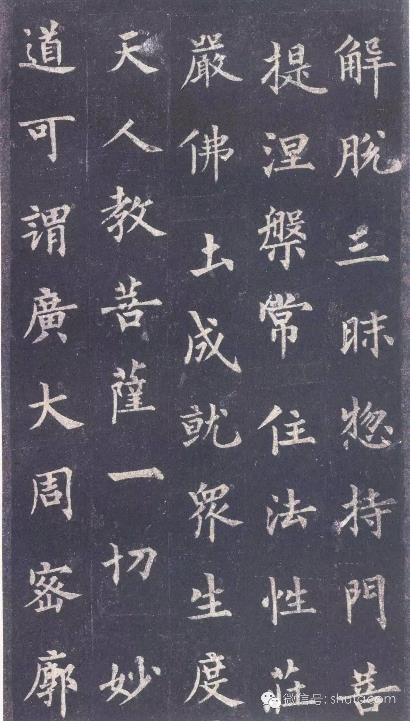 解脫三昧惣持門善
提涅槃常住法性莊
嚴佛土成就眾生度
天人教菩薩一切妙
道可謂廣大周密廓
微信号: shufacom